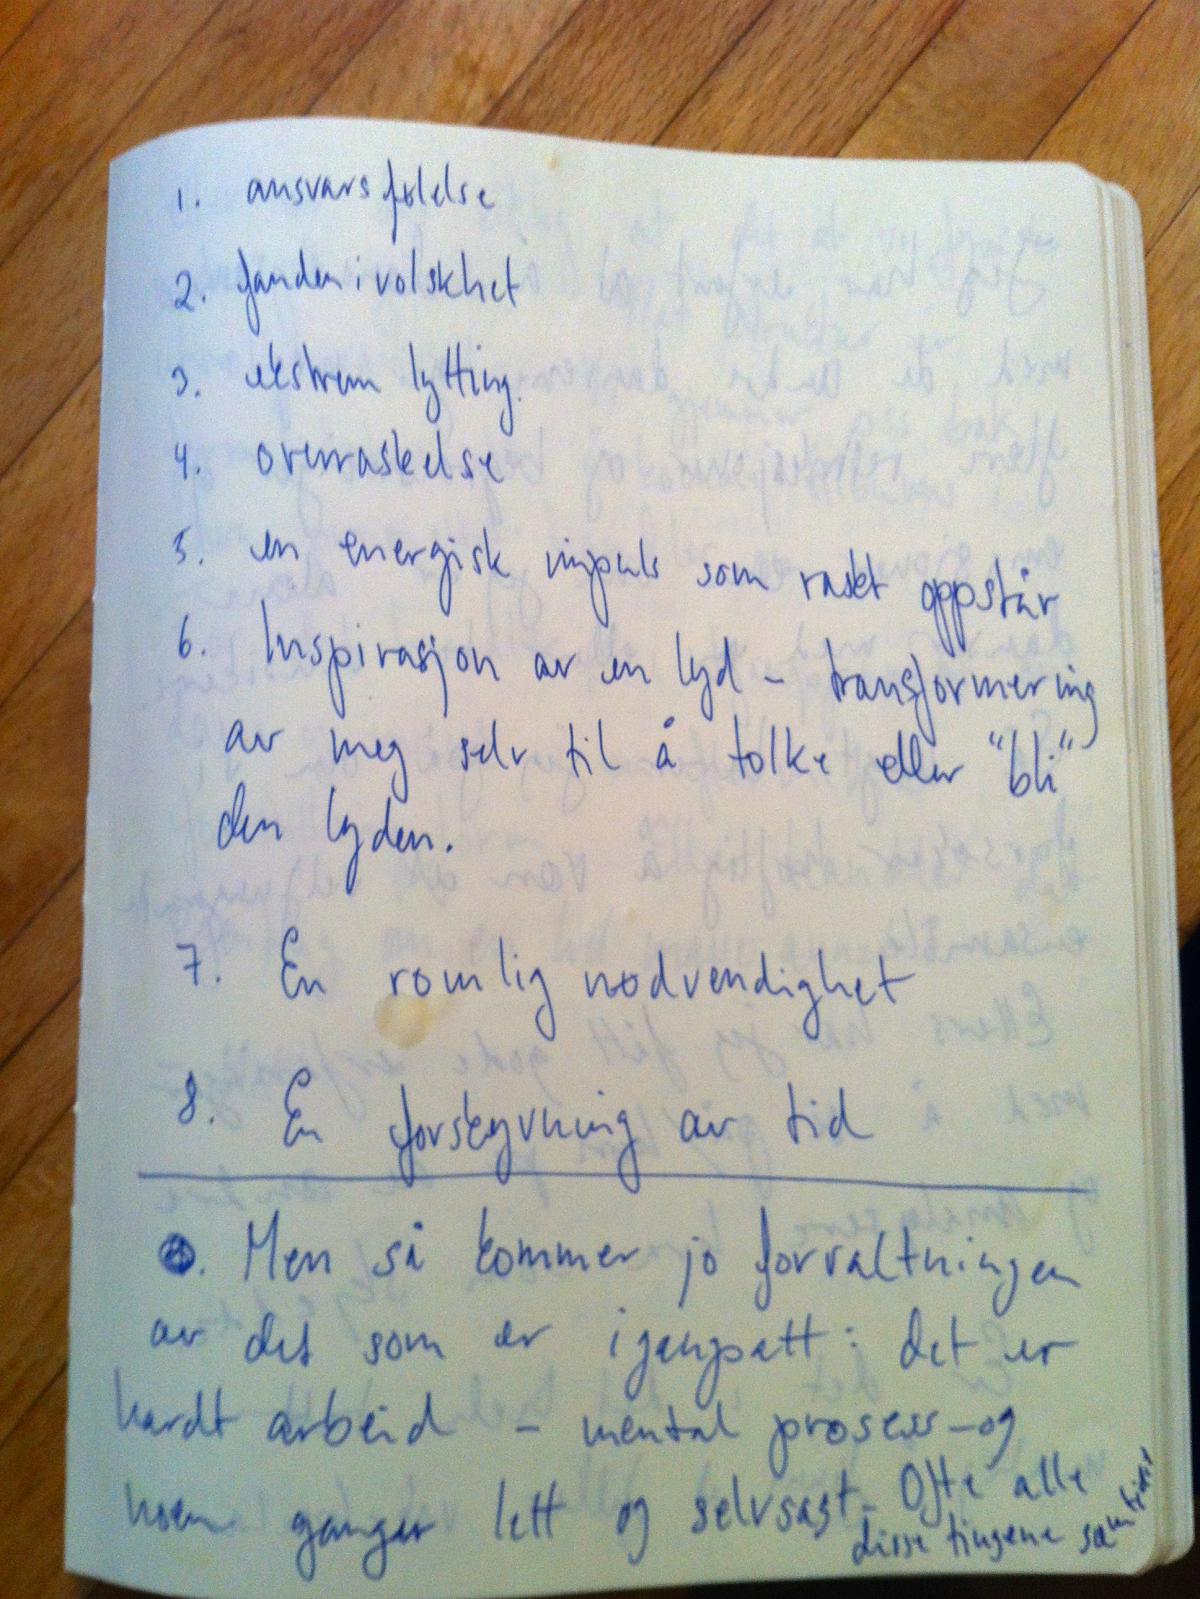 1. ansvarsfølelse
2. fandenivolskhet
3. ekstrem lytting.
4. overraskelse
5. en energisk impuls som raskt oppstår
6. Inspirasjon av en lyd - transformering
av meg selv til å tolke eller "bli"
den lyden.
7. En romlig nødvendighet
8. En forskyvning av tid
Men så kommer jo forvaltningen
av det som er igangsatt: det er
hardt arbeid - mental prosess - og
noen ganger lett og selvsagt - Ofte alle
disse tingene samtidig